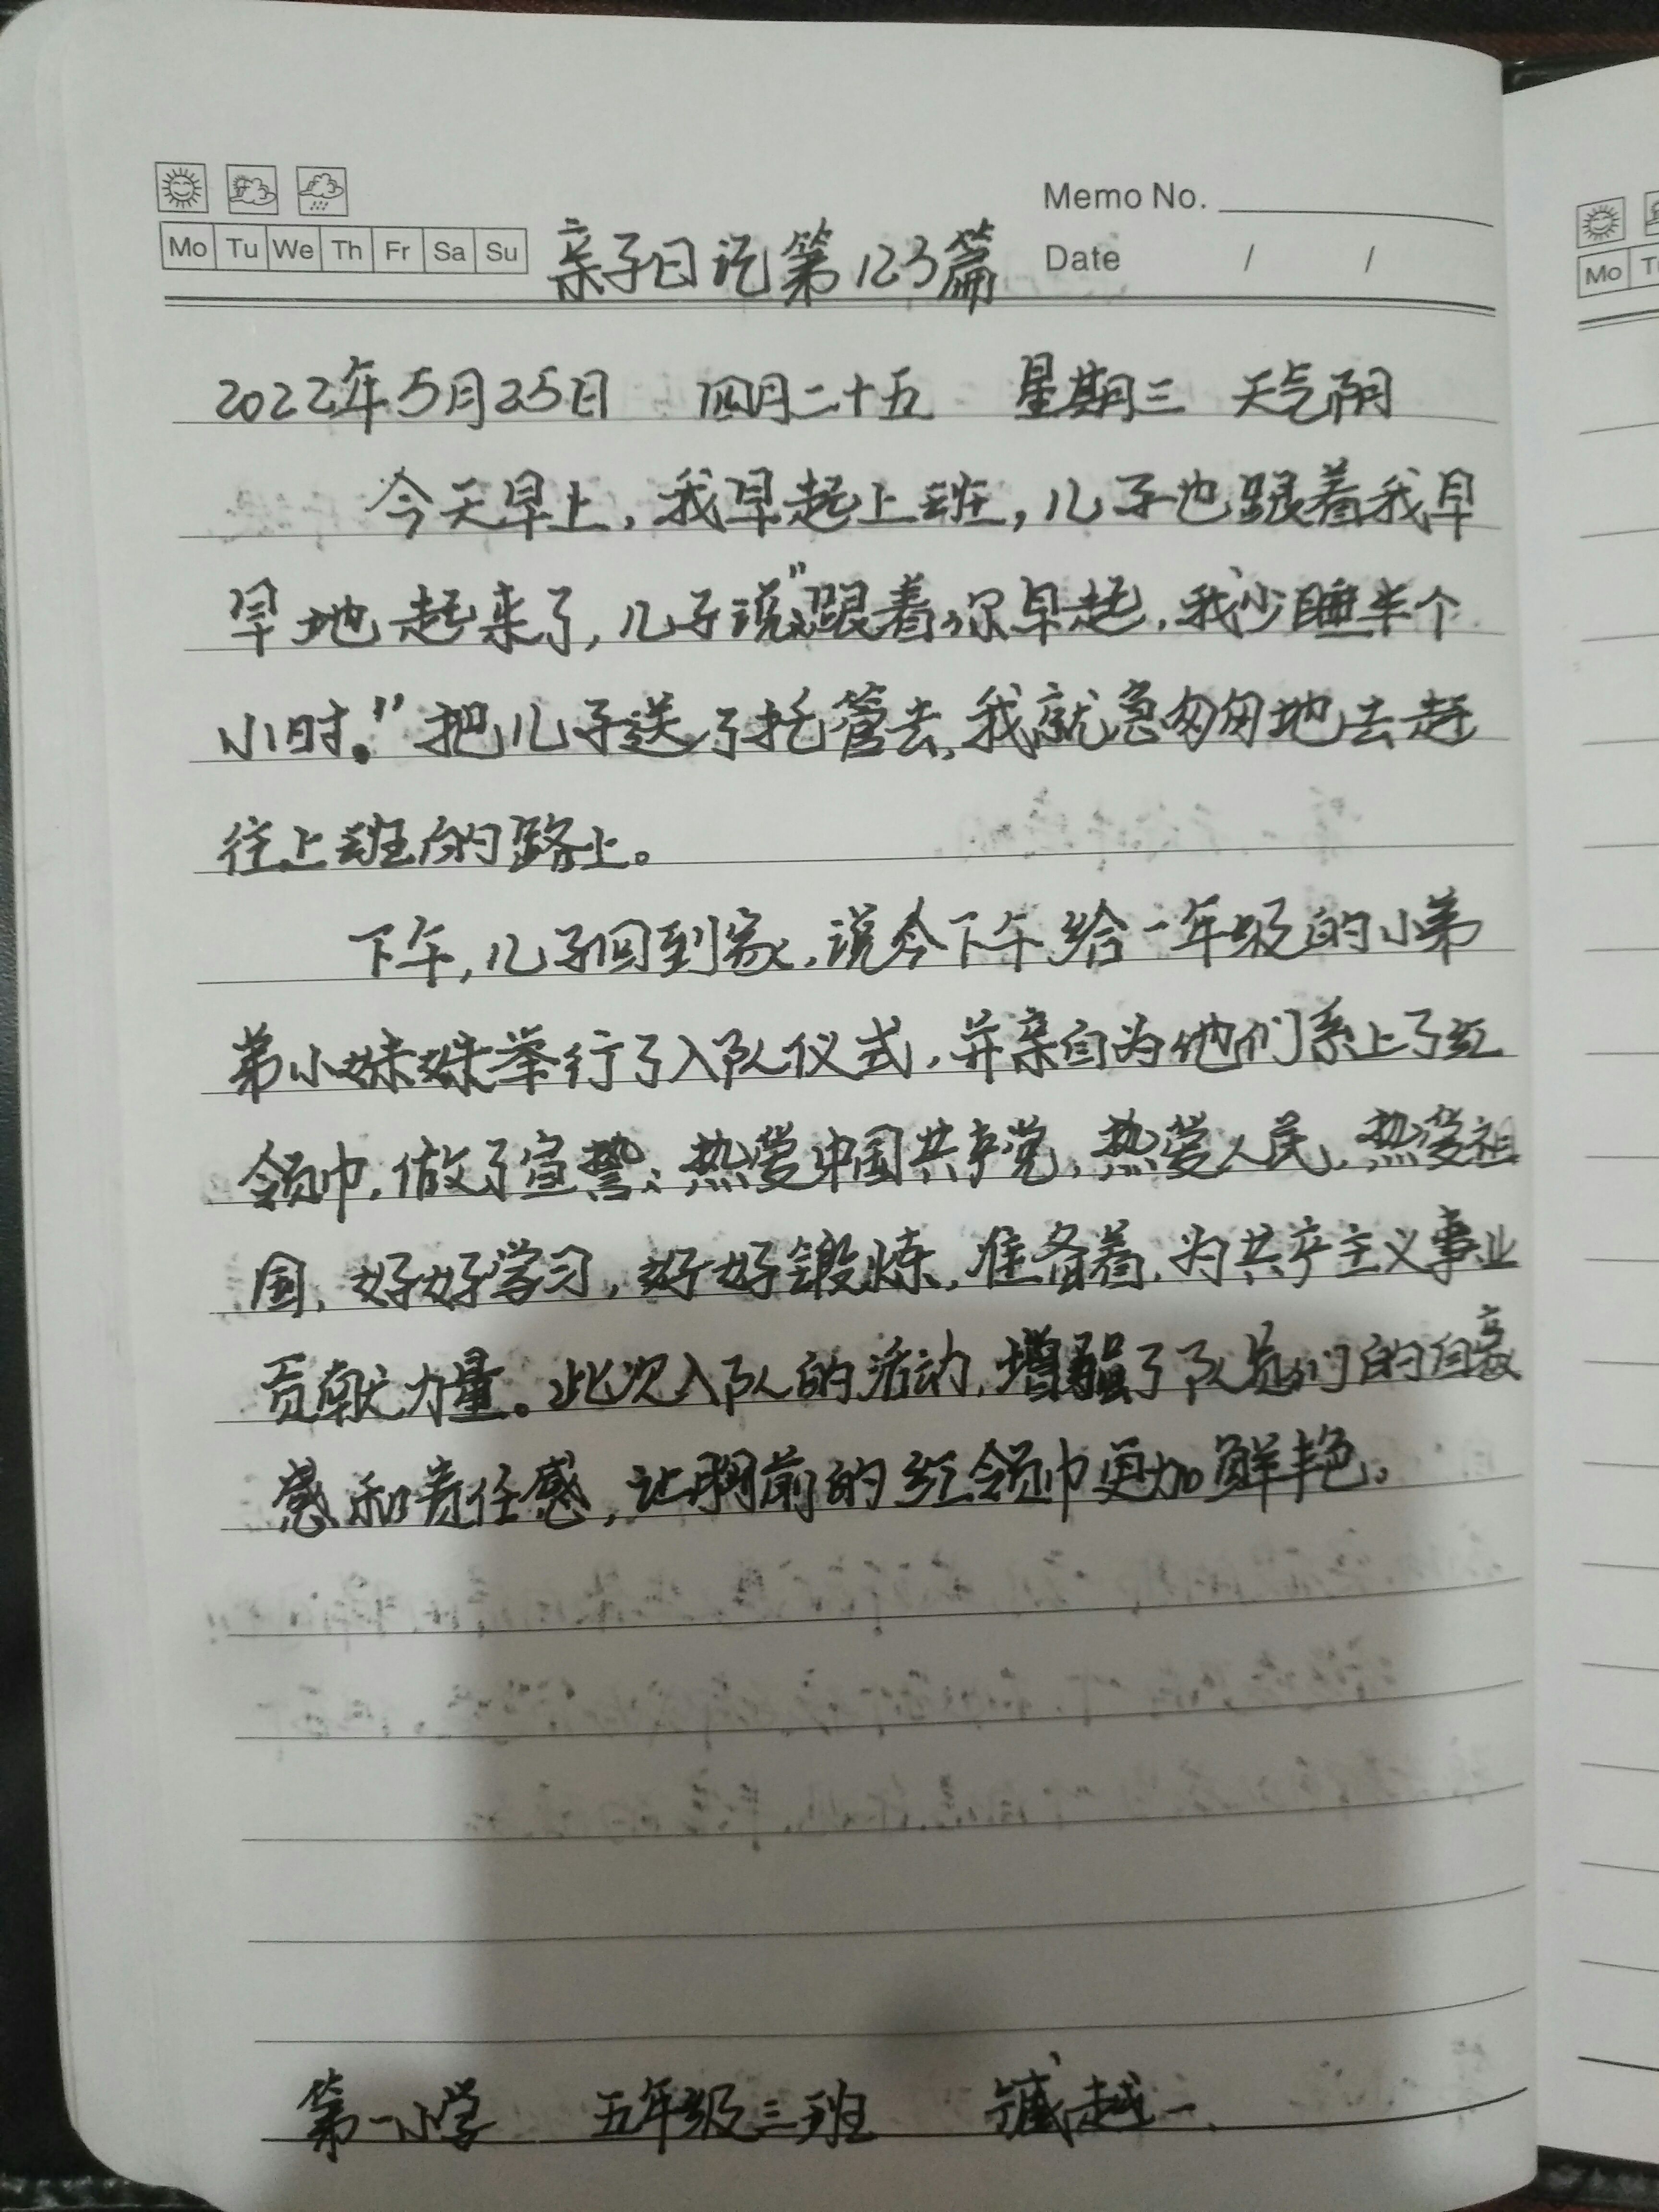 Memo No.
Mo Tu We Th Fr Sa Su
亲子日记第123篇
Date / /
2022年5月25日 四月二十五 星期三 天气阴
今天早上,我早起上班,儿子也跟着我早
早地起来了,儿子说:"跟着你早起,我少睡半个
小时。"把儿子送了托管去,我就急匆匆地去赶
往上班的路上。
下午,儿子回到家,说今下午给一年级的小弟
弟小妹妹举行了入队仪式,并亲自为他们系上了红
领巾,做了宣誓:热爱中国共产党,热爱人民,热爱祖
国,好好学习,好好锻炼,准备着,为共产主义事业
贡献力量。此次入队的活动,增强了队员们的自豪
感和责任感,让胸前的红领巾更加鲜艳。
第一小学 五年级三班 越一
Mo